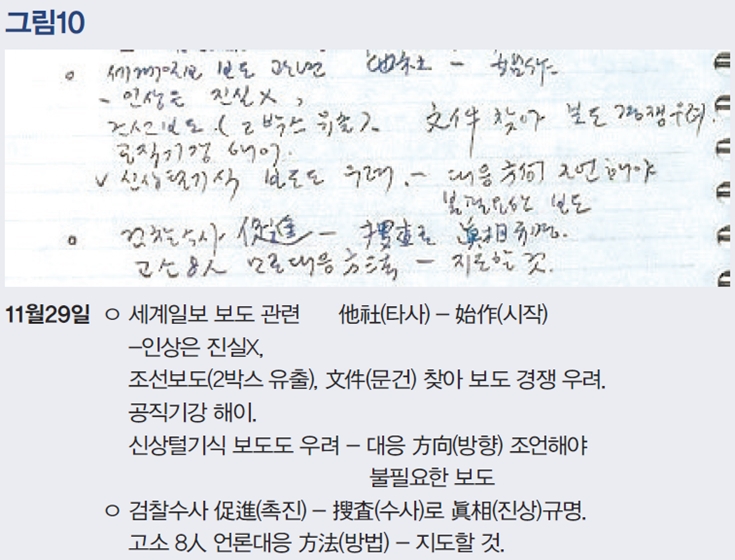 그림10
세계일보 보도 관련 他社 – 始作
– 인상은 진실X,
조선보도 (2박스 유출), 文件 찾아 보도 경쟁우려.
공직기강 해이.
∨ 신상털기식 보도도 우려. – 대응 方向 조언해야
불필요한 보도
검찰수사 促進 – 搜査로 眞相규명.
고소 8人 언론대응 方法 – 지도할 것.
11월29일 ○ 세계일보 보도 관련 他社(타사) – 始作(시작)
–인상은 진실X,
조선보도(2박스 유출), 文件(문건) 찾아 보도 경쟁 우려.
공직기강 해이.
신상털기식 보도도 우려 – 대응 方向(방향) 조언해야
불필요한 보도
○ 검찰수사 促進(촉진) – 搜査(수사)로 眞相(진상)규명.
고소 8人 언론대응 方法(방법) – 지도할 것.